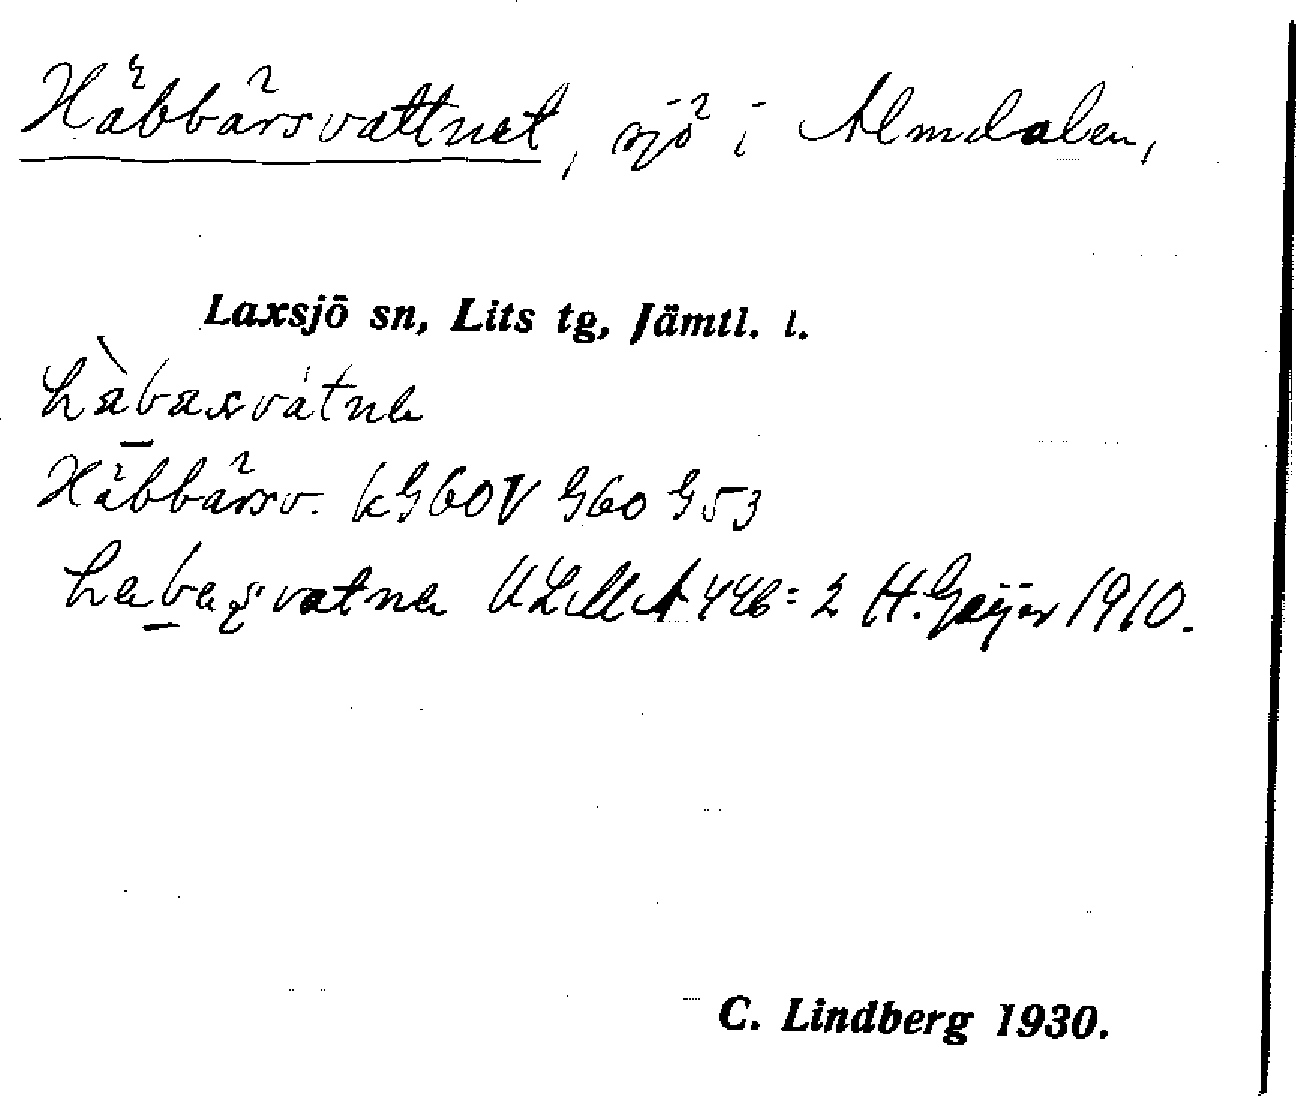 Häbbärsvattnet, sjö i Almdalen,
Laxsjö sn, Lits tg, Jämtl. l.
hàbasvátne
Häbbärsv. kG60V G60 G53
hebasvatne ULMA 446:2 H. Geijer 1910.
C. Lindberg 1930.